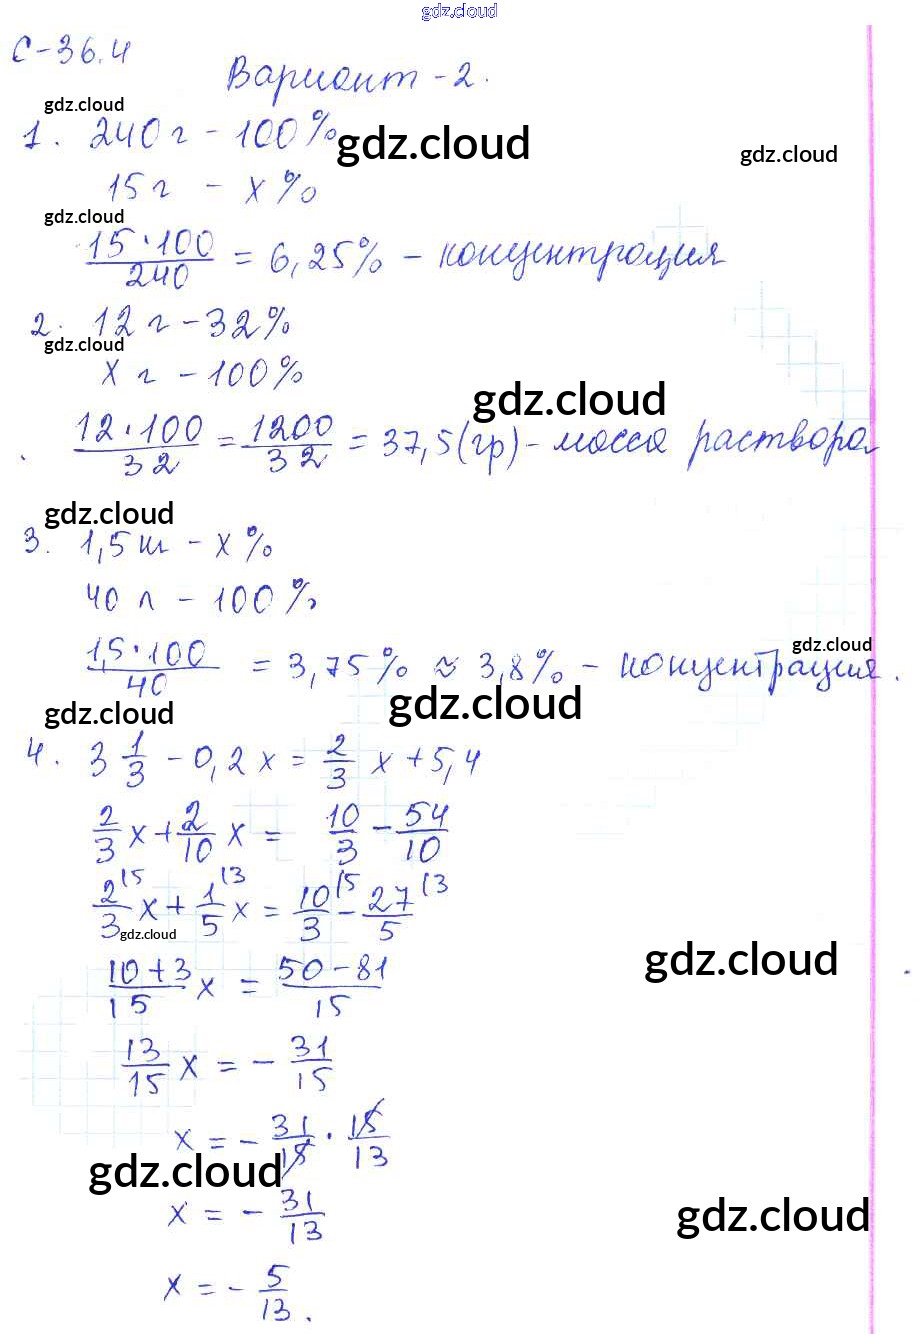 gdz.cloud
С-36.4
Вариант-2.
gdz.cloud
1. 240 г - 100% gdz.cloud gdz.cloud
15 г - x%
gdz.cloud
15·100/240 = 6,25% - концентрация
2. 12 г - 32%
gdz.cloud
x г - 100%
gdz.cloud
12·100/32 = 1200/32 = 37,5(гр) - масса раствора
gdz.cloud
3. 1,5 ш - x%
40 л - 100%
gdz.cloud
1,5·100/40 = 3,75% ≈ 3,8% - концентрация.
gdz.cloud gdz.cloud
4. 3 1/3 - 0,2x = 2/3 x + 5,4
2/3 x + 2/10 x = 10/3 - 54/10
2/3 (5 x + 1/5 (3 x = 10/3 (5 - 27/5 (3
gdz.cloud
10+3/15 x = 50-81/15 gdz.cloud
13/15 x = - 31/15
x = - 31/15 · 15/13
gdz.cloud
x = - 31/13 gdz.cloud
x = - 5/13.